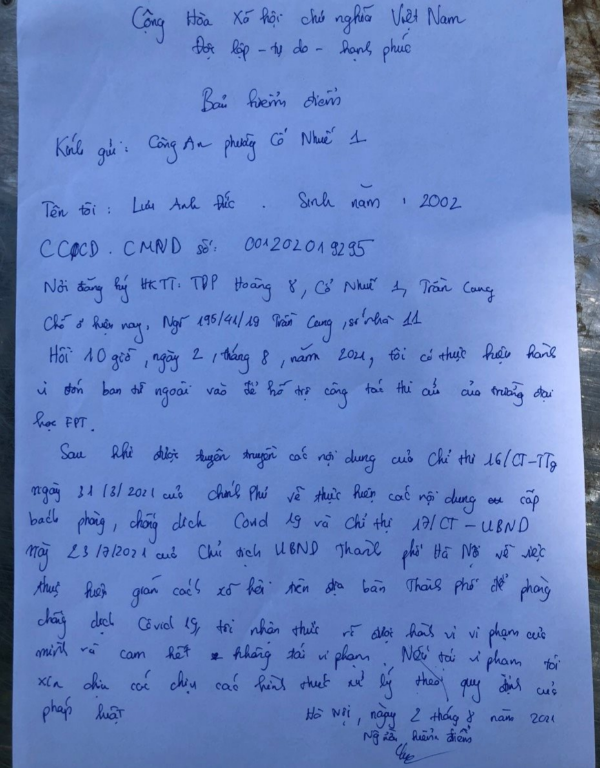 Cộng Hòa Xã hội chủ nghĩa Việt Nam
Độc lập - tự do - hạnh phúc
Bản kiểm điểm
Kính gửi: Công An phường Cổ Nhuế 1
Tên tôi : Lưu Anh Đức . Sinh năm : 2002
CCCD . CMND số: 001202019295
Nơi đăng ký HKTT: TDP Hoàng 8, Cổ Nhuế 1, Trần Cung
Chỗ ở hiện nay. Ngõ 195/41/19 Trần Cung, số nhà 11
Hồi 10 giờ, ngày 2, tháng 8, năm 2021, tôi có thực hiện hành
vi đón bạn từ ngoài vào để hỗ trợ công tác thi cử của trường đại
học FPT.
Sau khi được tuyên truyền các nội dung của Chỉ thị 16/CT-TTg
ngày 31/3/2021 của chính Phủ về thực hiện các nội dung cấp
bách phòng, chống dịch Covid 19 và Chỉ thị 17/CT - UBND
ngày 23/7/2021 của Chủ tịch UBND Thành phố Hà Nội về việc
thực hiện giãn cách xã hội trên địa bàn Thành phố để phòng
chống dịch Covid 19, tôi nhận thức rõ được hành vi vi phạm của
mình và cam kết không tái vi phạm. Nếu tái vi phạm tôi
xin chịu các chịu các hình thức xử lý theo quy định của
pháp luật
Hà Nội, ngày 2 tháng 8 năm 2021
Người kiểm điểm